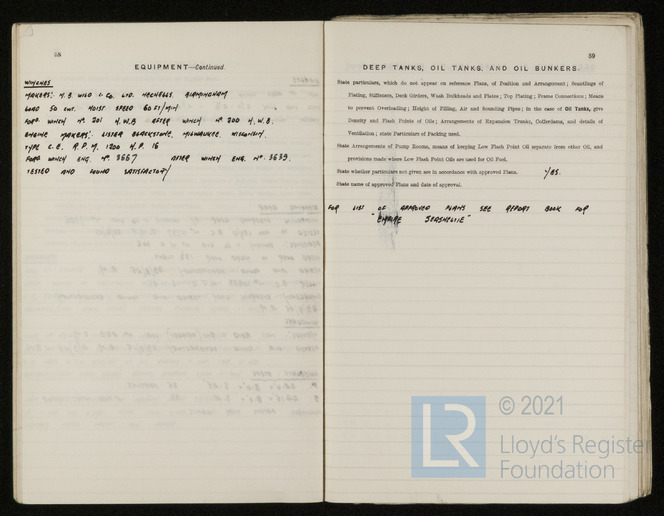 58
EQUIPMENT—Continued.
WINCHES
MAKERS: M.B. WILD & CO. LTD. NECHELLS. BIRMINGHAM
LOAD 50 CWT. HOIST SPEED 60 FT/MIN
FORD WINCH Nº 201 H.W.B AFTER WINCH Nº 200 H.W.B.
ENGINE MAKERS: LISTER BLACKSTONE, MILWAUKEE, WISCONSIN.
TYPE C.E. R.P.M. 1200 H.P. 16
FORD WINCH ENG. Nº 3667 AFTER WINCH ENG. Nº 3639.
TESTED AND FOUND SATISFACTORY
59
DEEP TANKS, OIL TANKS, AND OIL BUNKERS.
State particulars, which do not appear on reference Plans, of Position and Arrangement; Scantlings of
Plating, Stiffeners, Deck Girders, Wash Bulkheads and Plates; Top Plating; Frame Connections; Means
to prevent Overloading; Height of Filling, Air and Sounding Pipes; in the case of Oil Tanks, give
Density and Flash Points of Oils; Arrangements of Expansion Trunks, Cofferdams, and details of
Ventilation; state Particulars of Packing used.
State Arrangements of Pump Rooms, means of keeping Low Flash Point Oil separate from other Oil, and
provisions made where Low Flash Point Oils are used for Oil Fuel.
State whether particulars not given are in accordance with approved Plans. YES.
State name of approved Plans and date of approval.
FOR LIST OF APPROVED PLANS SEE REPORT BOOK FOR
"EMPIRE SEASHELLIE"
LR
© 2021
Lloyd's Register
Foundation